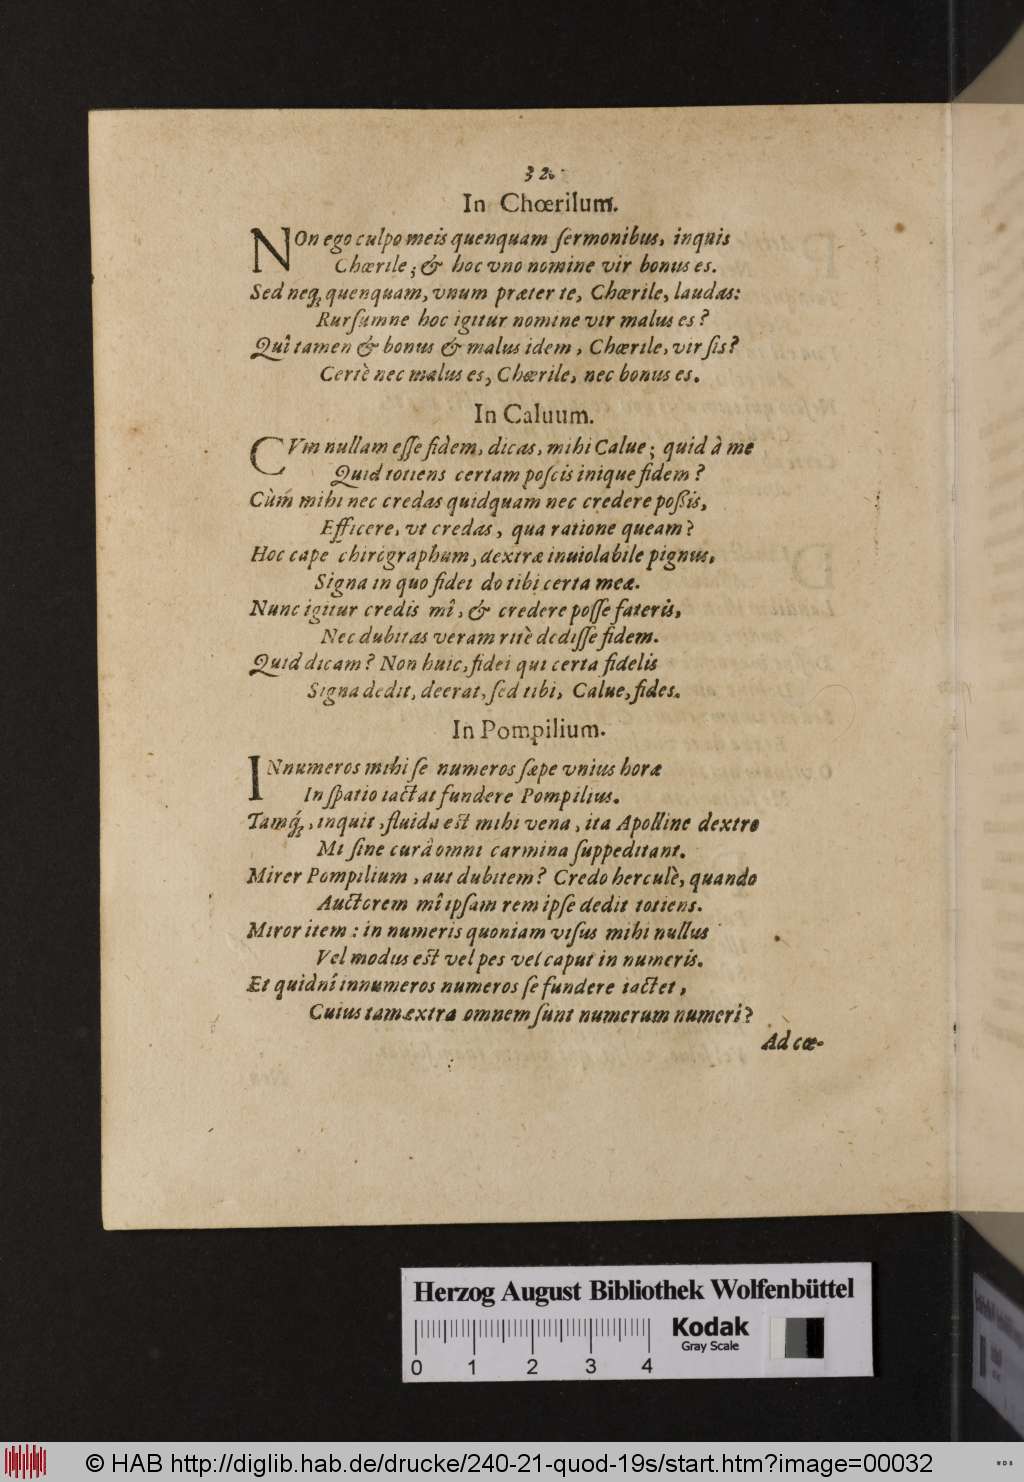 32.
In Chœrilum.
NOn ego culpo meis quenquam ſermonibus, inquis
Chœrile; & hoc vno nomine vir bonus es.
Sed neq; quenquam, vnum præter te, Chœrile, laudas:
Rurſumne hoc igitur nomine vir malus es?
Quî tamen & bonus & malus idem, Chœrile, vir ſis?
Certè nec malus es, Chœrile, nec bonus es.
In Caluum.
CVm nullam eſſe fidem, dicas, mihi Calue; quid à me
Quid totiens certam poſcis inique fidem?
Cùm mihi nec credas quidquam nec credere poßis,
Efficere, vt credas, qua ratione queam?
Hoc cape chirógraphum, dextræ inuiolabile pignus,
Signa in quo fidei do tibi certa meæ.
Nunc igitur credis mî, & credere poſſe fateris,
Nec dubitas veram ritè dediſſe fidem.
Quid dicam? Non huic, fidei qui certa fidelis
Signa dedit, deerat, ſed tibi, Calue, fides.
In Pompilium.
INnumeros mihi ſe numeros ſæpe vnius horæ
In ſpatio iactat fundere Pompilius.
Tamq́;, inquit, fluida est mihi vena, ita Apolline dextro
Mi ſine curâ omni carmina ſuppeditant.
Mirer Pompilium, aut dubitem? Credo herculè, quando
Auctorem mî ipſam rem ipſe dedit totiens.
Miror item: in numeris quoniam viſus mihi nullus
Vel modus est vel pes vel caput in numeris.
Et quidní innumeros numeros ſe fundere iactet,
Cuius tam extra omnem ſunt numerum numeri?
Ad cœ-
Herzog August Bibliothek Wolfenbüttel
Kodak
Gray Scale
0 1 2 3 4
© HAB http://diglib.hab.de/drucke/240-21-quod-19s/start.htm?image=00032